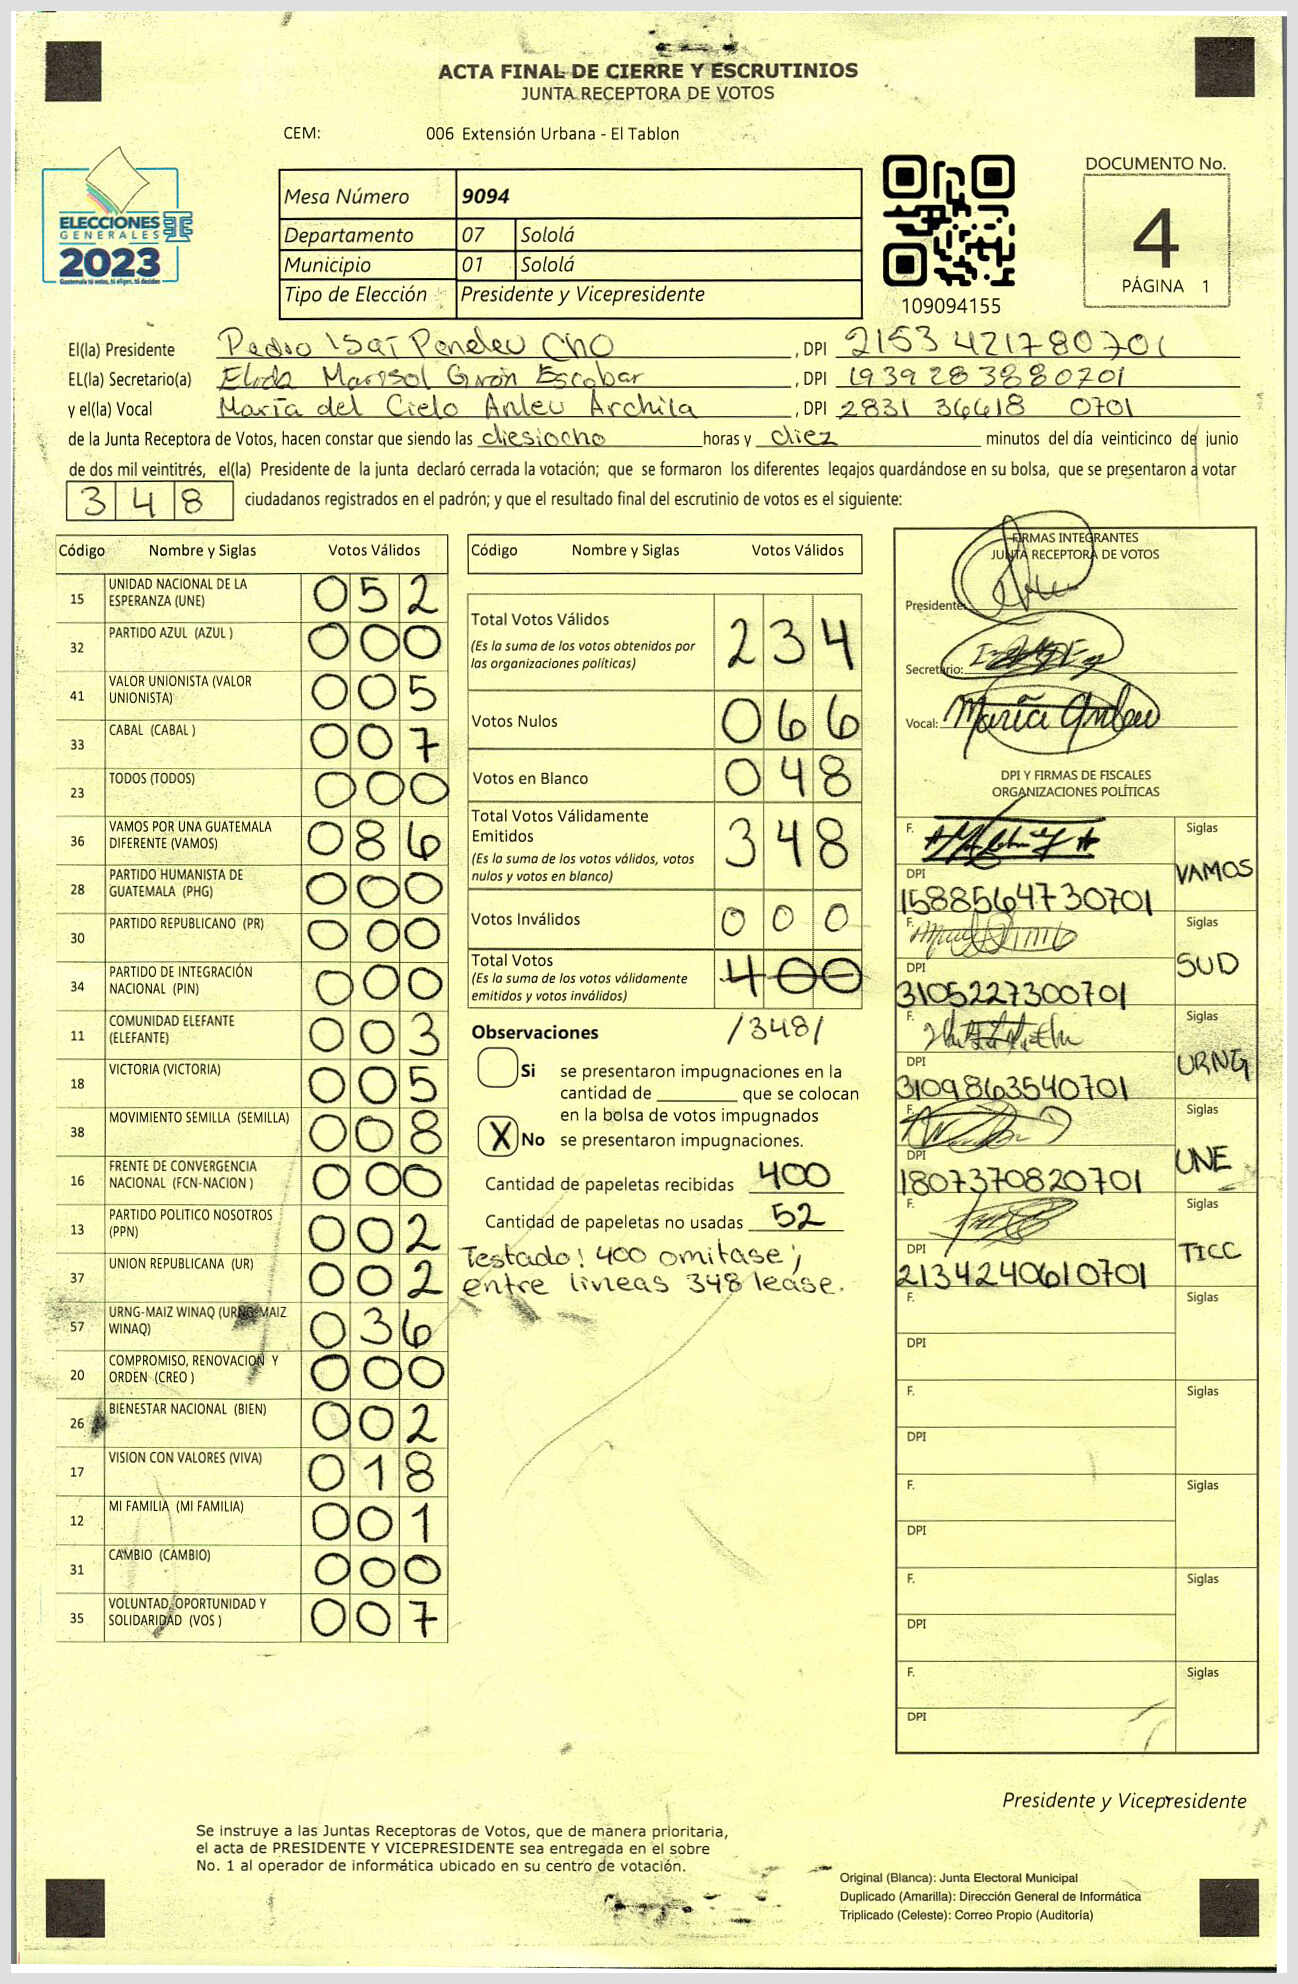 ACTA FINAL DE CIERRE Y ESCRUTINIOS
JUNTA RECEPTORA DE VOTOS
CEM: 006 Extensión Urbana - El Tablon
ELECCIONES
GENERALES
2023
Guatemala tú votas, tú eliges, tú decides
Mesa Número 9094
Departamento 07 Sololá
Municipio 01 Sololá
Tipo de Elección Presidente y Vicepresidente
109094155
DOCUMENTO No.
4
PÁGINA 1
El(la) Presidente Pedro Isaí , DPI 2153 421780701
EL(la) Secretario(a) Elida Marisol Girón Escobar , DPI 1939283880701
y el(la) Vocal María del Cielo Anleu Archila , DPI 2831 36618 0701
de la Junta Receptora de Votos, hacen constar que siendo las diesiocho horas y diez minutos del día veinticinco de junio
de dos mil veintitrés, el(la) Presidente de la junta declaró cerrada la votación; que se formaron los diferentes legajos quardándose en su bolsa, que se presentaron a votar
348 ciudadanos registrados en el padrón; y que el resultado final del escrutinio de votos es el siguiente:
Código Nombre y Siglas Votos Válidos
15 UNIDAD NACIONAL DE LA ESPERANZA (UNE) 052
32 PARTIDO AZUL (AZUL ) 000
41 VALOR UNIONISTA (VALOR UNIONISTA) 005
33 CABAL (CABAL ) 007
23 TODOS (TODOS) 000
36 VAMOS POR UNA GUATEMALA DIFERENTE (VAMOS) 086
28 PARTIDO HUMANISTA DE GUATEMALA (PHG) 000
30 PARTIDO REPUBLICANO (PR) 000
34 PARTIDO DE INTEGRACIÓN NACIONAL (PIN) 000
11 COMUNIDAD ELEFANTE (ELEFANTE) 003
18 VICTORIA (VICTORIA) 005
38 MOVIMIENTO SEMILLA (SEMILLA) 008
16 FRENTE DE CONVERGENCIA NACIONAL (FCN-NACION ) 000
13 PARTIDO POLITICO NOSOTROS (PPN) 002
37 UNION REPUBLICANA (UR) 002
57 URNG-MAIZ WINAQ (URNG-MAIZ WINAQ) 036
20 COMPROMISO, RENOVACION Y ORDEN (CREO ) 000
26 BIENESTAR NACIONAL (BIEN) 002
17 VISION CON VALORES (VIVA) 018
12 MI FAMILIA (MI FAMILIA) 001
31 CAMBIO (CAMBIO) 000
35 VOLUNTAD, OPORTUNIDAD Y SOLIDARIDAD (VOS ) 007
Código Nombre y Siglas Votos Válidos
Total Votos Válidos 234
(Es la suma de los votos obtenidos por
las organizaciones políticas)
Votos Nulos 066
Votos en Blanco 048
Total Votos Válidamente
Emitidos 348
(Es la suma de los votos válidos, votos
nulos y votos en blanco)
Votos Inválidos 000
Total Votos 400
(Es la suma de los votos válidamente
emitidos y votos inválidos)
Observaciones /348/
Si se presentaron impugnaciones en la
cantidad de ________ que se colocan
en la bolsa de votos impugnados
X No se presentaron impugnaciones.
Cantidad de papeletas recibidas 400
Cantidad de papeletas no usadas 52
Testado! 400 omitase;
entre lineas 348 lease.
FIRMAS INTEGRANTES
JUNTA RECEPTORA DE VOTOS
Presidente:
Secretario:
Vocal: María Anleu
DPI Y FIRMAS DE FISCALES
ORGANIZACIONES POLÍTICAS
F. Siglas VAMOS
DPI 1588564730701
F. Siglas SUD
DPI 3105227300701
F. Siglas URNG
DPI 3109863540701
F. Siglas UNE
DPI 1807370820701
F. Siglas TICC
DPI 2134240610701
F. Siglas
DPI
F. Siglas
DPI
F. Siglas
DPI
F. Siglas
DPI
F. Siglas
DPI
Presidente y Vicepresidente
Se instruye a las Juntas Receptoras de Votos, que de manera prioritaria,
el acta de PRESIDENTE Y VICEPRESIDENTE sea entregada en el sobre
No. 1 al operador de informática ubicado en su centro de votación.
Original (Blanca): Junta Electoral Municipal
Duplicado (Amarilla): Dirección General de Informática
Triplicado (Celeste): Correo Propio (Auditoría)